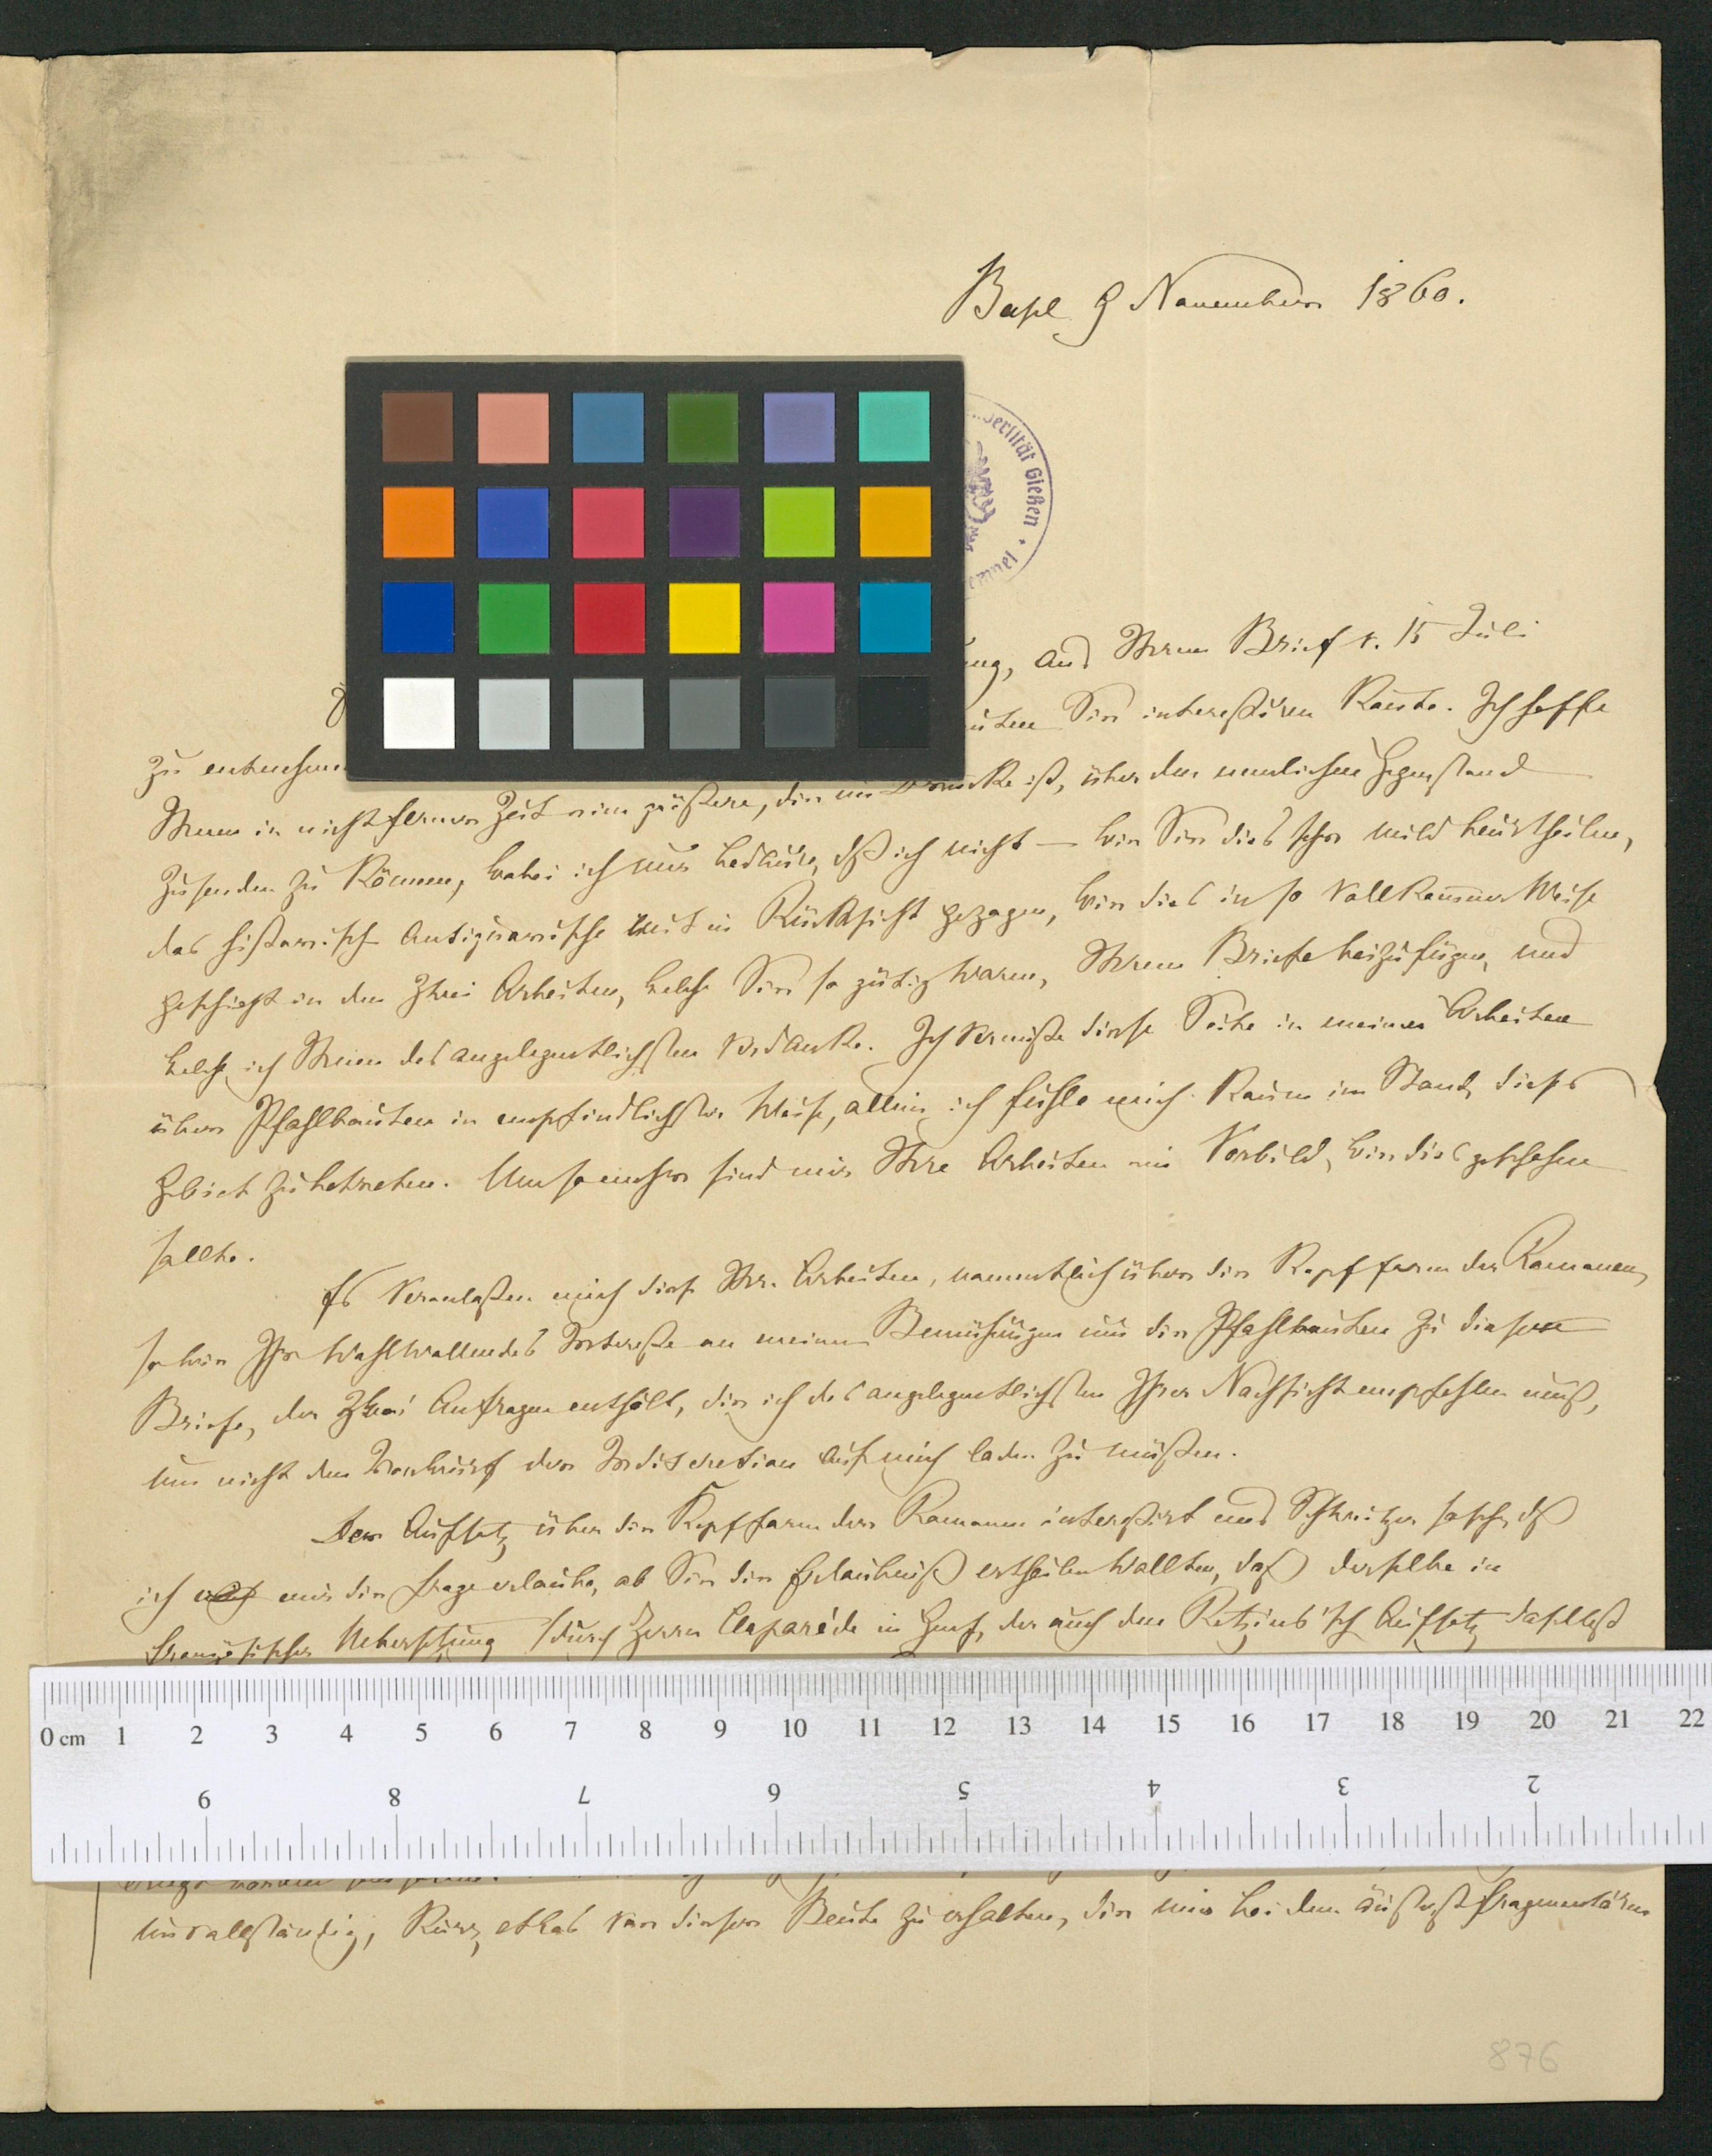 Basel 9 November 1860.
versität Gießen
aus Ihrem Brief v. 15 Juli
zu entnehmen
Sie interessiren konnte. Ich hoffe
Ihnen in nicht ferner Zeit eine größere, die im Drucke ist, über den nemlichen Gegenstand
zusenden zu können, wobei ich nur bedaure, dß ich nicht — wie Sie dies schon mild beurtheilen,
das historisch Antiquarische mit in Rücksicht gezogen, wie dies in so vollkommner Weise
geschieht in den zwei Arbeiten, welche Sie so gütig waren, Ihrem Briefe beizufügen, und
welche ich Ihnen des angelegentlichsten verdanke. Ich vermisse diese Seite in meinen Arbeiten
über Pfahlbauten in empfindlichster Weise, allein ich fühle mich kaum im Stand, dieses
Gebiet zu betreten. Umsomehr sind mir Ihre Arbeiten ein Vorbild, wie dies geschehen
sollte.
Es veranlaßen mich diese Ihre Arbeiten, namentlich über die Kopfform der Romanen,
so wie Ihr wohlwollendes Interesse an meinen Bemühungen um die Pfahlbauten zu diesem
Briefe, der zwei Anfragen enthält, die ich des angelegentlichsten Ihrer Nachsicht empfehlen muß,
um nicht den Vorwurf der Indiscretion auf mich laden zu müßen.
Der Aufsatz über die Kopfform der Romanen interessirt uns Schweizer so sehr, dß
ich mir die Frage erlaube, ob Sie die Erlaubniß ertheilen wollten, daß derselbe in
französischer Uebersetzung (durch Herrn Claparède in Genf, der auch den Retzius'sch Aufsatz daselbst
0 cm 1 2 3 4 5 6 7 8 9 10 11 12 13 14 15 16 17 18 19 20 21 22
9 8 7 6 5 4 3 2
unvollständig, kurz, etwas von dieser Beute zu erhalten, die mir bei dem äußerst fragmentären
876